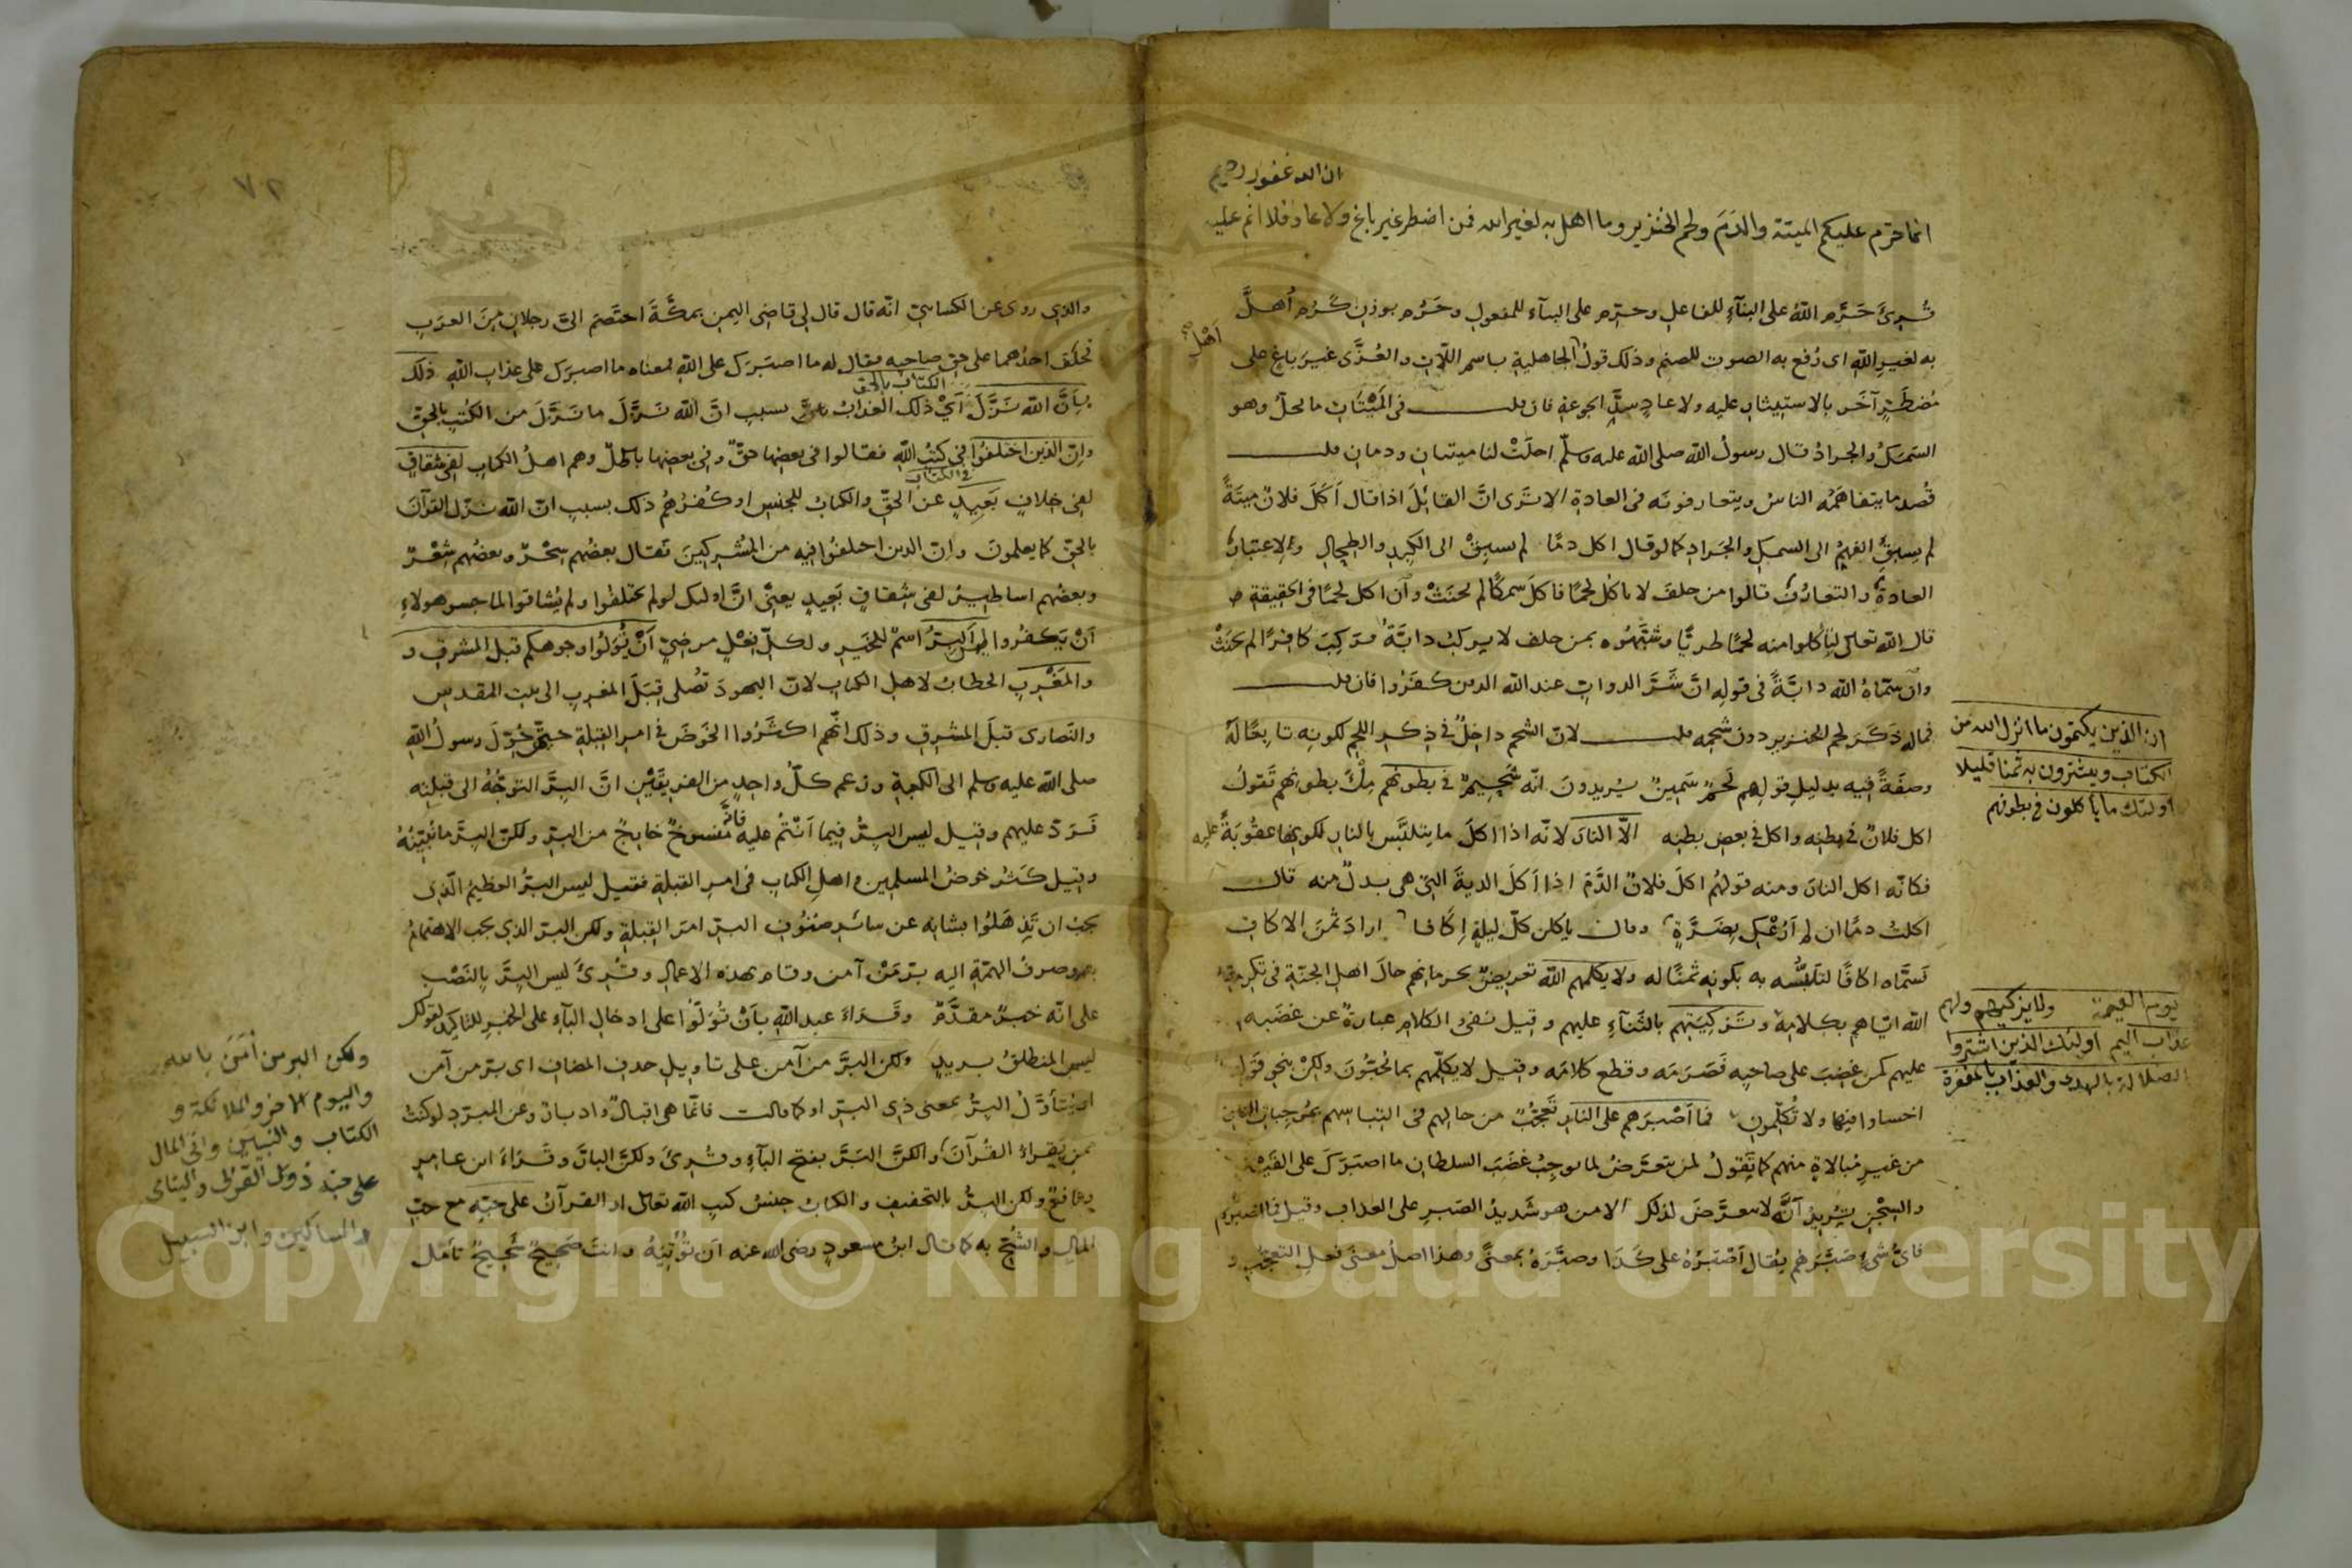 ان الله غفور رحيم
انما حرم عليكم الميتة والدم ولحم الخنزير وما اهل به لغير الله فمن اضطر غير باغ ولا عاد فلا اثم عليه
قُرِئَ حَرَّم اللهُ على البنآءِ للفاعل وحرّم على البنآء للمفعول وحَرُم بوزن كَرُم أُهِلَّ
به لغيرِ الله اى رُفع به الصوت للصنم وذلك قولُ اهْلِ الجاهلية باسم اللّات والعُزَّى غيرَ باغ على
مُضطَرٍّ آخَر بالاستيثار عليه ولا عادٍ سدَّ الجوعة فان قلت فى المَيْتَاتِ ما يحلّ وهو
السَمَكُ والجرادُ قال رسولُ الله صلى الله عليه وسلّم احلّتْ لنا ميتتان ودمان قلت
قُصِد ما يتفاهمُه الناسُ ويتعارفونه فى العادة الا تَرى انَّ القائِلَ اذا قال أَكَلَ فلانٌ ميتَةً
لم يسبِقِ الفهمُ الى السمكِ والجَراد كما لو قال اكل دمًا لم يسبِقْ الى الكَبِد والطِحالِ ولاعتبارِ
العادةِ والتعارُفِ قالوا من حلف لا ياكُل لحمًا فاكل سمكًا لم يحنَثْ وان اكل لحمًا فى الحقيقة
قال الله تعالى لتأكلوا منه لحمًا طريًّا وشبّهُوه بمن حلف لا يركبُ دابّةً فركِبَ كافرًا لم يحنَثْ
وان سمّاهُ الله دابّةً فى قوله انَّ شَرَّ الدوابِ عند الله الذين كفَرُوا فان قلت
فماله ذَكَرَ لحم الخنزير دون شحمه قلت لانّ الشحم داخِلٌ فى ذِكرِ اللحم لكونه تابِعًا له
وصفَةً فيه بدليلِ قولِهم لَحمٌ سَمِينٌ يُريدونَ انّه شَحِيمٌ فى بطونهم مِلْءَ بطونهم تَقولُ
اكل فلانٌ فى بطنه واكل فى بعض بطنه الّا النارَ لانّه اذا اكلَ ما يتلبَّس بالنار لكونها عقُوبَةً عليه
فكانّه اكل النارَ ومنه قولهُم اكلَ فلانٌ الدَّمَ اذا أكَلَ الديةَ التى هى بدلٌ منه قال
اكلتُ دمًا ان لم أَرُعْكِ بِضَرَّةٍ وقال ياكلن كلّ ليلةٍ إكافا ارادَ ثمنَ الاكاف
فسَمَّاه اكافًا لتلبُّسِه به بكونِه ثمنًا له ولا يكلمهم الله تعريضٌ بحرمانِهم حالَ اهلِ الجنّة فى تكرمة
الله ايّاهم بكلامِه وتَزكِيَتِهم بالثَنآءِ عليهم وقيل نَفىُ الكلام عبارةٌ عن غضَبِه
عليهم كمن غضِبَ على صاحبِه فصَرَمَه وقطع كلامَه وقيل لا يكلّمهم بما يُحبّونَ ولكنْ بنحو قولِه
اخسأوا فيها ولا تُكلّمونِ فما أَصْبَرَهم على النار تَعَجُّبٌ من حالِهم فى التباسِهم بمُوجِباتِ النارِ
من غيرِ مُبالاةٍ منهم كما تَقُولُ لمن يتعرَّضُ لما يوجبُ غضَبَ السلطان ما اصبَرَكَ على القَيْدِ
والسِجْنِ تُرِيدُ أنَّه لا يتعرَّضُ لذلك الا من هو شَديدُ الصَبرِ على العذاب وقيل فما اصبرهم
فاىُّ شىءٍ صَبَّرَهم يُقال أَصْبَرَهُ على كَذَا وصبَّرَهُ بمعنًى وهذا اصلُ معنَى فعلِ التعجّبِ و
ان الذين يكتمون ما انزل الله من
الكتاب ويشترون به ثمنا قليلا
اولئك ما ياكلون فى بطونهم
يوم القيمة ولا يزكيهم ولهم
عذاب اليم اولئك الذين اشتروا
الضلالة بالهدى والعذاب بالمغفرة
٧٢
والذي روى عن الكسائىّ انّه قال قال لى قاضى اليمن بمكّةَ اختَصَم الىّ رجلانِ مِنَ العرَبِ
فحلَفَ احدُهما على حقِّ صاحبِه فقال له ما اصبَرَكَ على اللهِ فمعناه ما اصبرَكَ على عذاب اللهِ ذلك
بِأنَّ الله نَزَّلَ الكتاب بالحق أىْ ذلك العذابُ بسبب انَّ الله نَزَّلَ ما نَزَّلَ من الكتُبِ بالحقّ
وانّ الذين اختلفُوا فى كتُبِ اللهِ فقالوا فى بعضِها حقٌّ وفى بعضِها باطلٌ وهم اهلُ الكتابِ لفِى شِقاقٍ
فى الكتاب
لفِى خِلافٍ بَعِيدٍ عن الحقِّ والكتابُ للجنسِ او كُفرُهم ذلك بسببِ انّ الله نزّلَ القرآنَ
بالحقّ كما يعلمونَ وانّ الذين اختلفُوا فيه من المُشركينَ فقال بعضُهم سِحْرٌ وبعضُهم شِعْرٌ
وبعضُهم اساطيرُ لفِى شِقاقٍ بَعِيدٍ يعنى انَّ اولئك لو لم يختلفُوا ولم يُشاقّوا لما جسر هولاءِ
أَنْ يَكفُروا ليس البِرُّ اسمٌ للخَيرِ ولكلِّ فِعْلٍ مرضِىٍّ أَنْ تُوَلُّوا وجوهكم قبل المشرق و
والمَغْرِبِ الخطابُ لاهلِ الكتابِ لانّ اليهودَ تُصلى قِبَلَ المغربِ الى بيت المقدس
والنَصارَى قبَلَ المشرِقِ وذلك انّهم اكثَرُوا الخَوضَ فى امرِ القِبلةِ حينَ حُوِّلَ رسولُ اللهِ
صلى الله عليه وسلم الى الكعبةِ وزعم كلُّ واحدٍ من الفريقَيْنِ انَّ البِرَّ التوجُّهُ الى قبلتِه
فَرَدّ عليهم وقيل ليس البِرُّ فيما أَنْتُم عليه فانّه مَنسوخٌ خارجٌ من البِرِّ ولكنّ البِرَّ ما نُبيّنُهُ
وقيل كَثُر خوضُ المسلمين واهلِ الكتابِ فى امرِ القبلةِ فقيل ليس البِرُّ العظيمُ الّذى
يجبُ ان تَذهَلُوا بشانِه عن سائرِ صُنُوفِ البِرِّ امرَ القِبلةِ ولكن البرّ الذى يجب الاهتمامُ
به وصرفُ الهمّةِ اليه بِرُّ مَنْ آمن وقام بهذه الاعمالِ وقُرِئَ ليس البِرَّ بِالنَصْبِ
على انّه خبرٌ مقدَّمٌ وقَرَاءَ عبد اللهِ بأَنْ تُوَلُّوا على ادخالِ البآءِ على الخبرِ للتأكيد لقولك
ليس المنطلقُ بزيدٍ ولكن البِرَّ من آمن على تاويلِ حذفِ المضافِ اى برّ من آمن
او يُتأوَّلُ البِرُّ بمعنى ذِى البِرِّ او كما قالت فانّما هى اقبالٌ وادبارُ وعن المبرّدِ لو كنتُ
ممن يَقرأُ القُرآنَ لقرأت ولكنَّ البَرَّ بفتحِ البآءِ وقُرِئَ ولكنَّ البارَّ وقَرَاءَ ابن عامِرٍ
ونافعٌ ولكن البِرُّ بالتخفيفِ والكتابُ جنسُ كتبِ الله تعالى او القرآنُ على حبّه مع حبّ
المالِ والشُحِّ به كما قال ابنُ مسعودٍ رضى الله عنه أن تُوتِيَهُ وانتَ صَحِيحٌ شَحِيحٌ تأمل
ولكن البر من آمن بالله
واليوم الاخر والملائكة و
الكتاب والنبيين واتى المال
على حبه ذوى القربى واليتامى
والمساكين وابن السبيل
Copyright © King Saud University